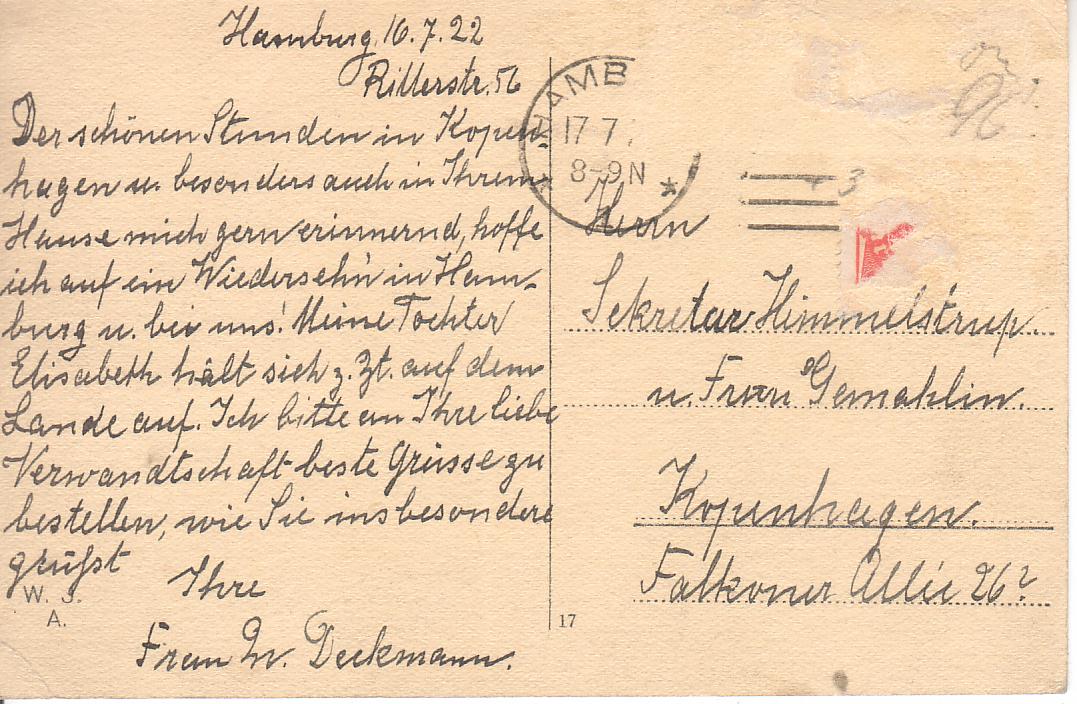 Hamburg, 16.7.22
Ritterstr. 56
Der schönen Stunden in Kopen-
hagen u. besonders auch in Ihrem
Hause mich gern erinnernd, hoffe
ich auf ein Wiederseh'n in Ham-
burg u. bei uns! Meine Tochter
Elisabeth hält sich z. Zt. auf dem
Lande auf. Ich bitte an Ihre liebe
Verwandtschaft beste Grüsse zu
bestellen, wie Sie insbesondere
grüßt
Ihre
Frau M. Deckmann.
W. J.
A.
17
HAMB
17 7.
8-9N
*
Herrn
Sekretär Himmelstrup
u. Frau Gemahlin.
Kopenhagen.
Falkoner Allée 26?
3